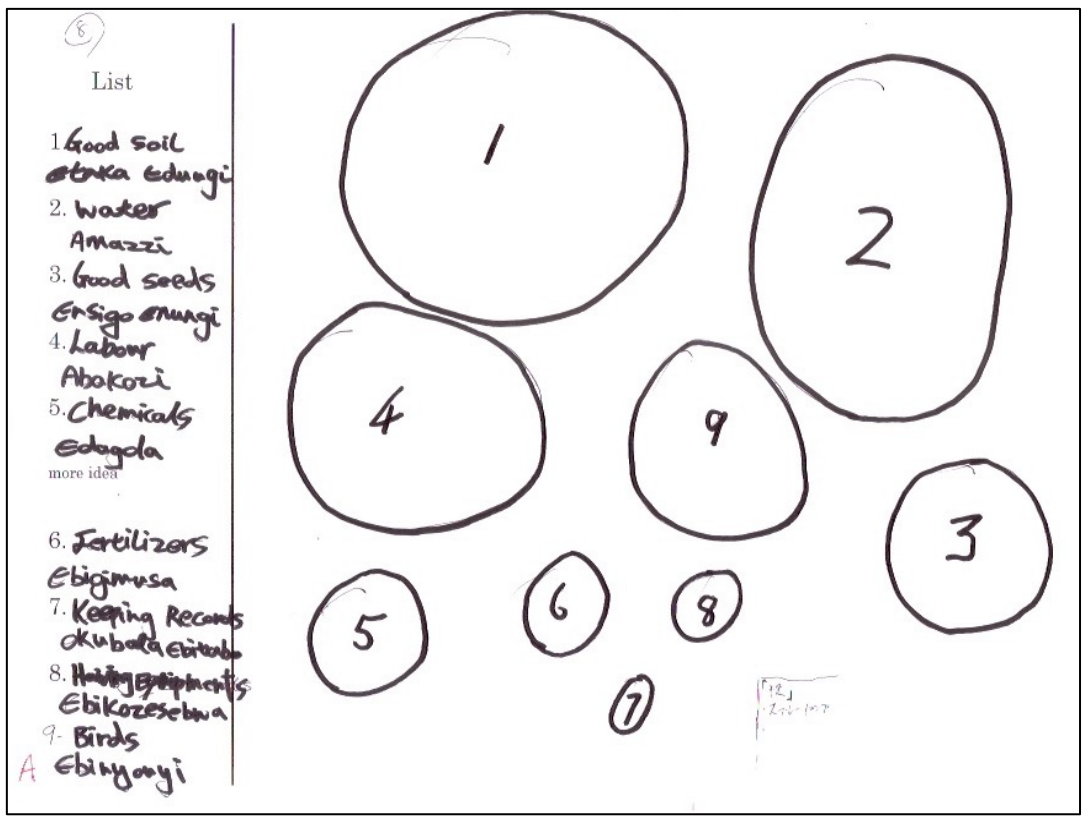 8
List
1 Good soil
etaka Edungi
2. Water
Amazzi
3. Good seeds
Ensigo enungi
4. Labour
Abakozi
5. Chemicals
Edagala
more idea
6. Fertilizers
Ebigimusa
7. Keeping Records
okubala Ebitabo
8. Having Equipments
Ebikozesebwa
9- Birds
A Ebinyonyi
1
2
4
9
3
5
6
8
7